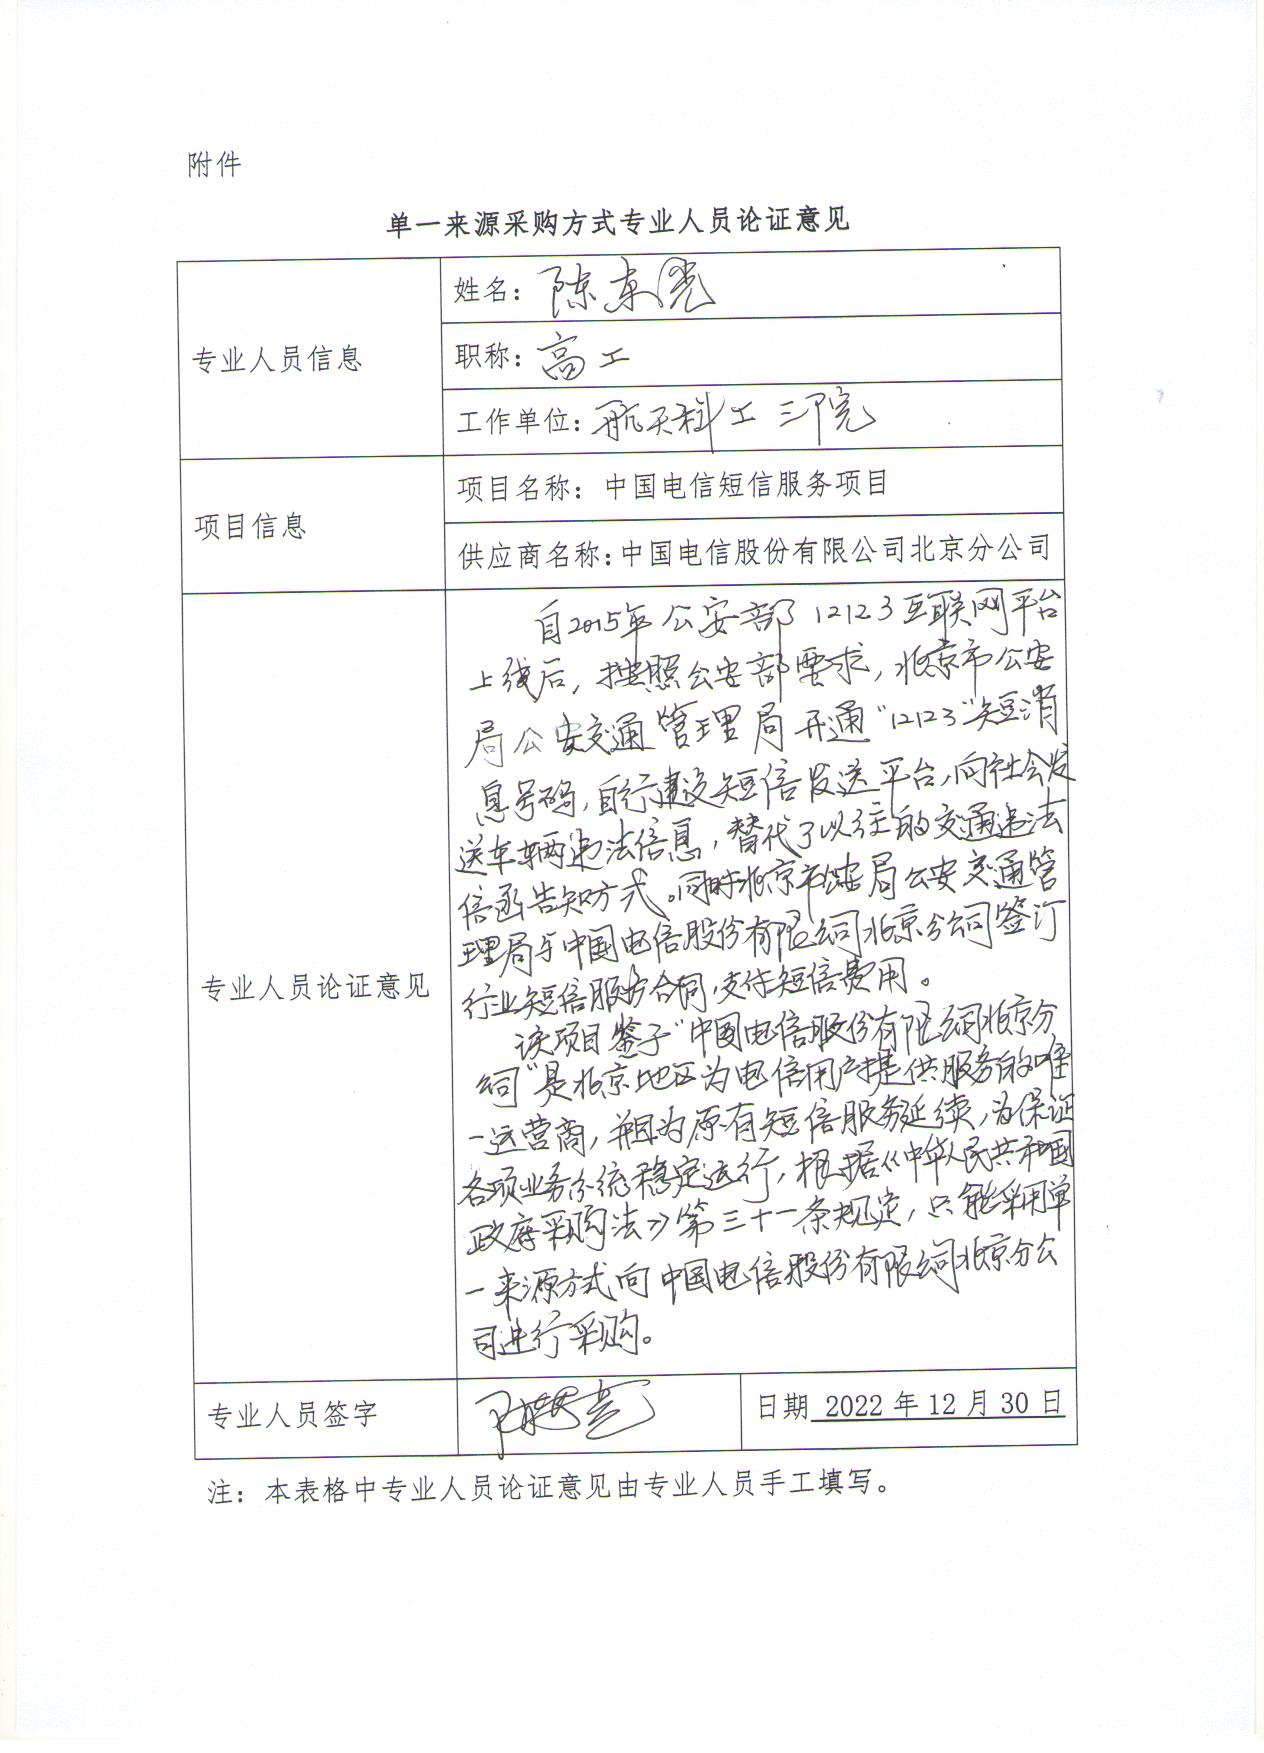 附件
单一来源采购方式专业人员论证意见
专业人员信息
姓名：陈东亮
职称：高工
工作单位：航天科工三院
项目信息
项目名称：中国电信短信服务项目
供应商名称：中国电信股份有限公司北京分公司
专业人员论证意见
自2015年公安部12123互联网平台
上线后，按照公安部要求，北京市公安
局公安交通管理局开通“12123”短消
息号码，自行建设短信发送平台，向社会发
送车辆违法信息，替代了以往的交通违法
信函告知方式。同时北京市公安局公安交通管
理局与中国电信股份有限公司北京分公司签订
行业短信服务合同，支付短信费用。
该项目鉴于“中国电信股份有限公司北京分
公司”是北京地区为电信用户提供服务的唯
一运营商，并因为原有短信服务延续，为保证
各项业务系统稳定运行，根据《中华人民共和国
政府采购法》第三十一条规定，只能采用单
一来源方式向中国电信股份有限公司北京分公
司进行采购。
专业人员签字
日期 2022年12月30日
注：本表格中专业人员论证意见由专业人员手工填写。